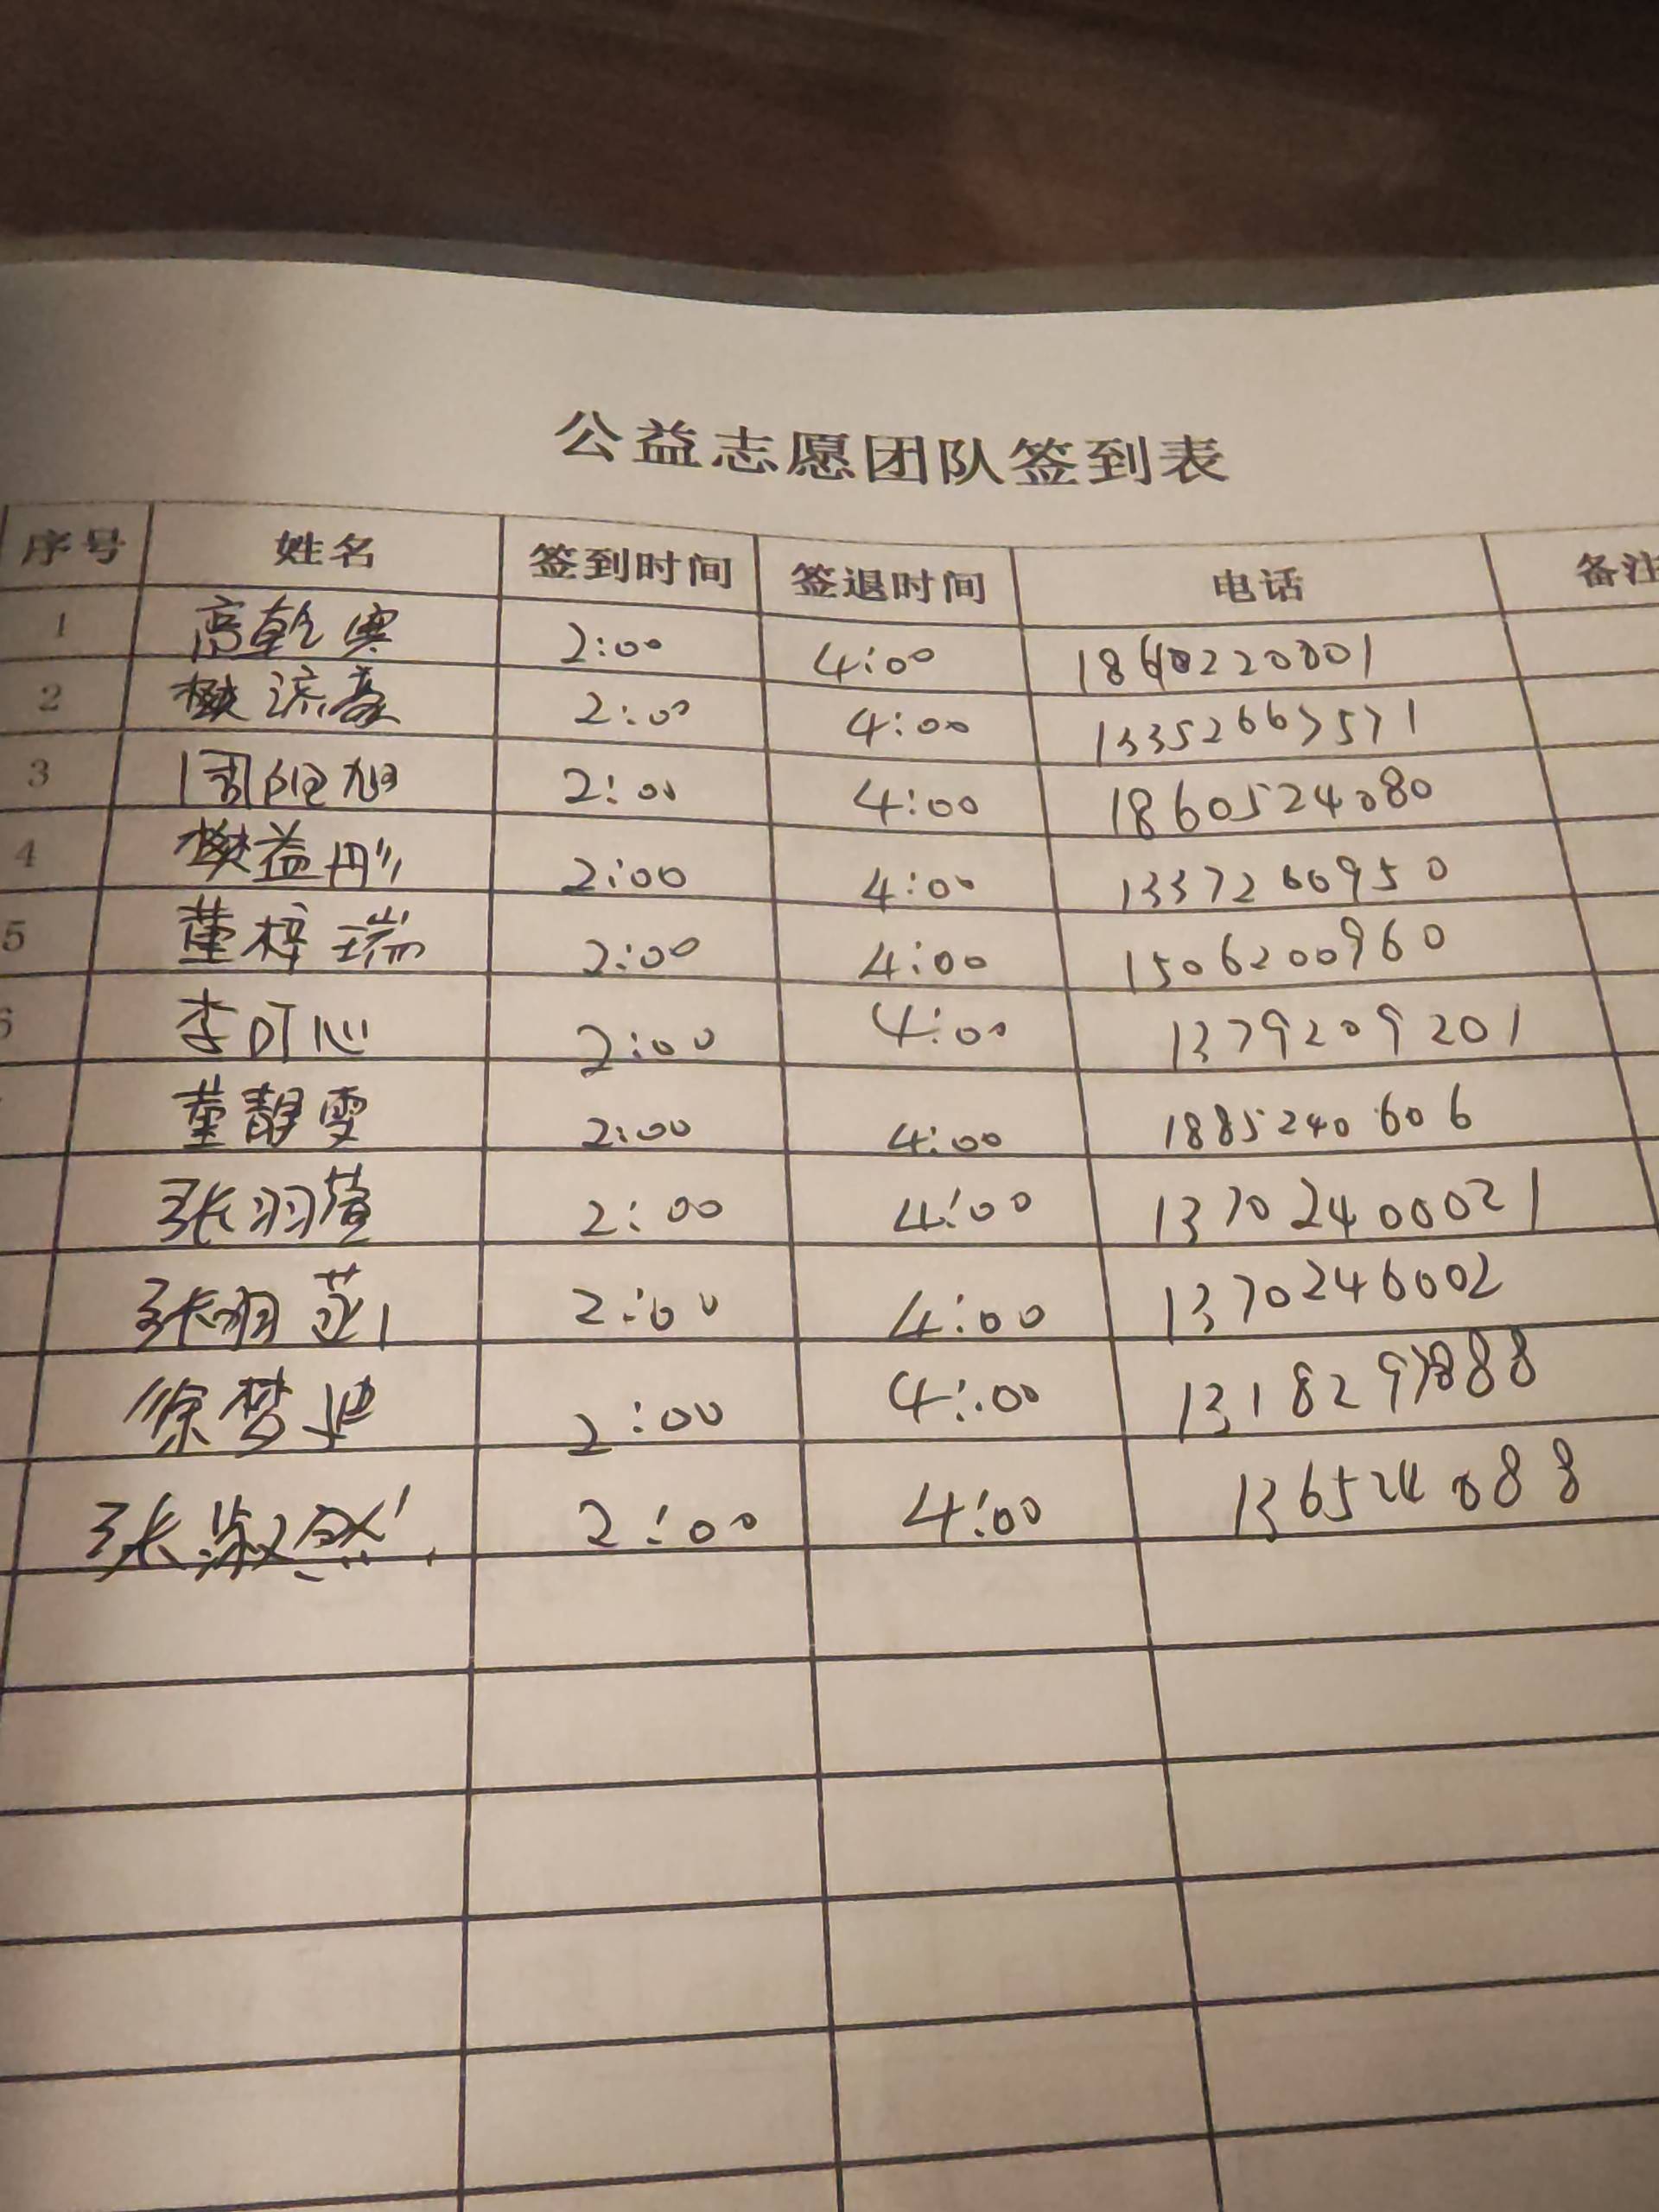 公益志愿团队签到表
序号 姓名 签到时间 签退时间 电话 备注
1 高乾寓 2:00 4:00 18640220001
2 樊流豪 2:00 4:00 13352667571
3 周阳旭 2:00 4:00 1860524080
4 樊益彤 2:00 4:00 1337260950
5 董梓瑞 2:00 4:00 1506200960
李可心 2:00 4:00 1379209201
董靜雯 2:00 4:00 1885240606
张羽萱 2:00 4:00 13702400021
张羽 2:00 4:00 1370246002
徐梦迪 2:00 4:00 1318297888
张淑 2:00 4:00